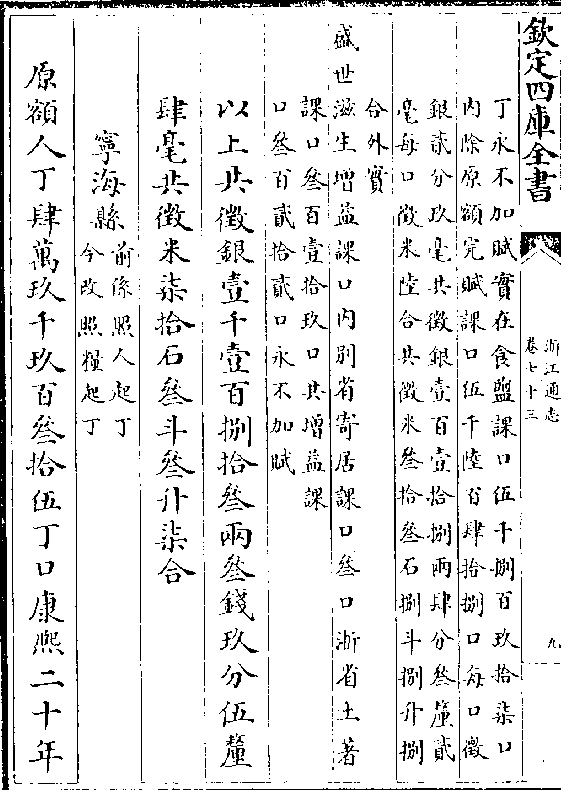 欽定四庫全書
浙江通志
卷七十三
九
丁永不加賦實在食鹽課口伍千捌百玖拾柒口
内除原額完賦課口伍千陸百肆拾捌口每口徵
銀貳分玖毫共徵銀壹百壹拾捌兩肆分叁釐貳
毫每口徵米陸合共徵米叁拾叁石捌斗捌升捌
合外實
盛世滋生增益課口内別省寄居課口叁口浙省土著
課口叁百壹拾玖口共增益課
口叁百貳拾貳口永不加賦
以上共徵銀壹千壹百捌拾叁兩叁錢玖分伍釐
肆毫共徵米柒拾石叁斗叁升柒合
寧海縣
前係照人起丁
今改照糧起丁
原額人丁肆萬玖千玖百叁拾伍丁口康熙二十年